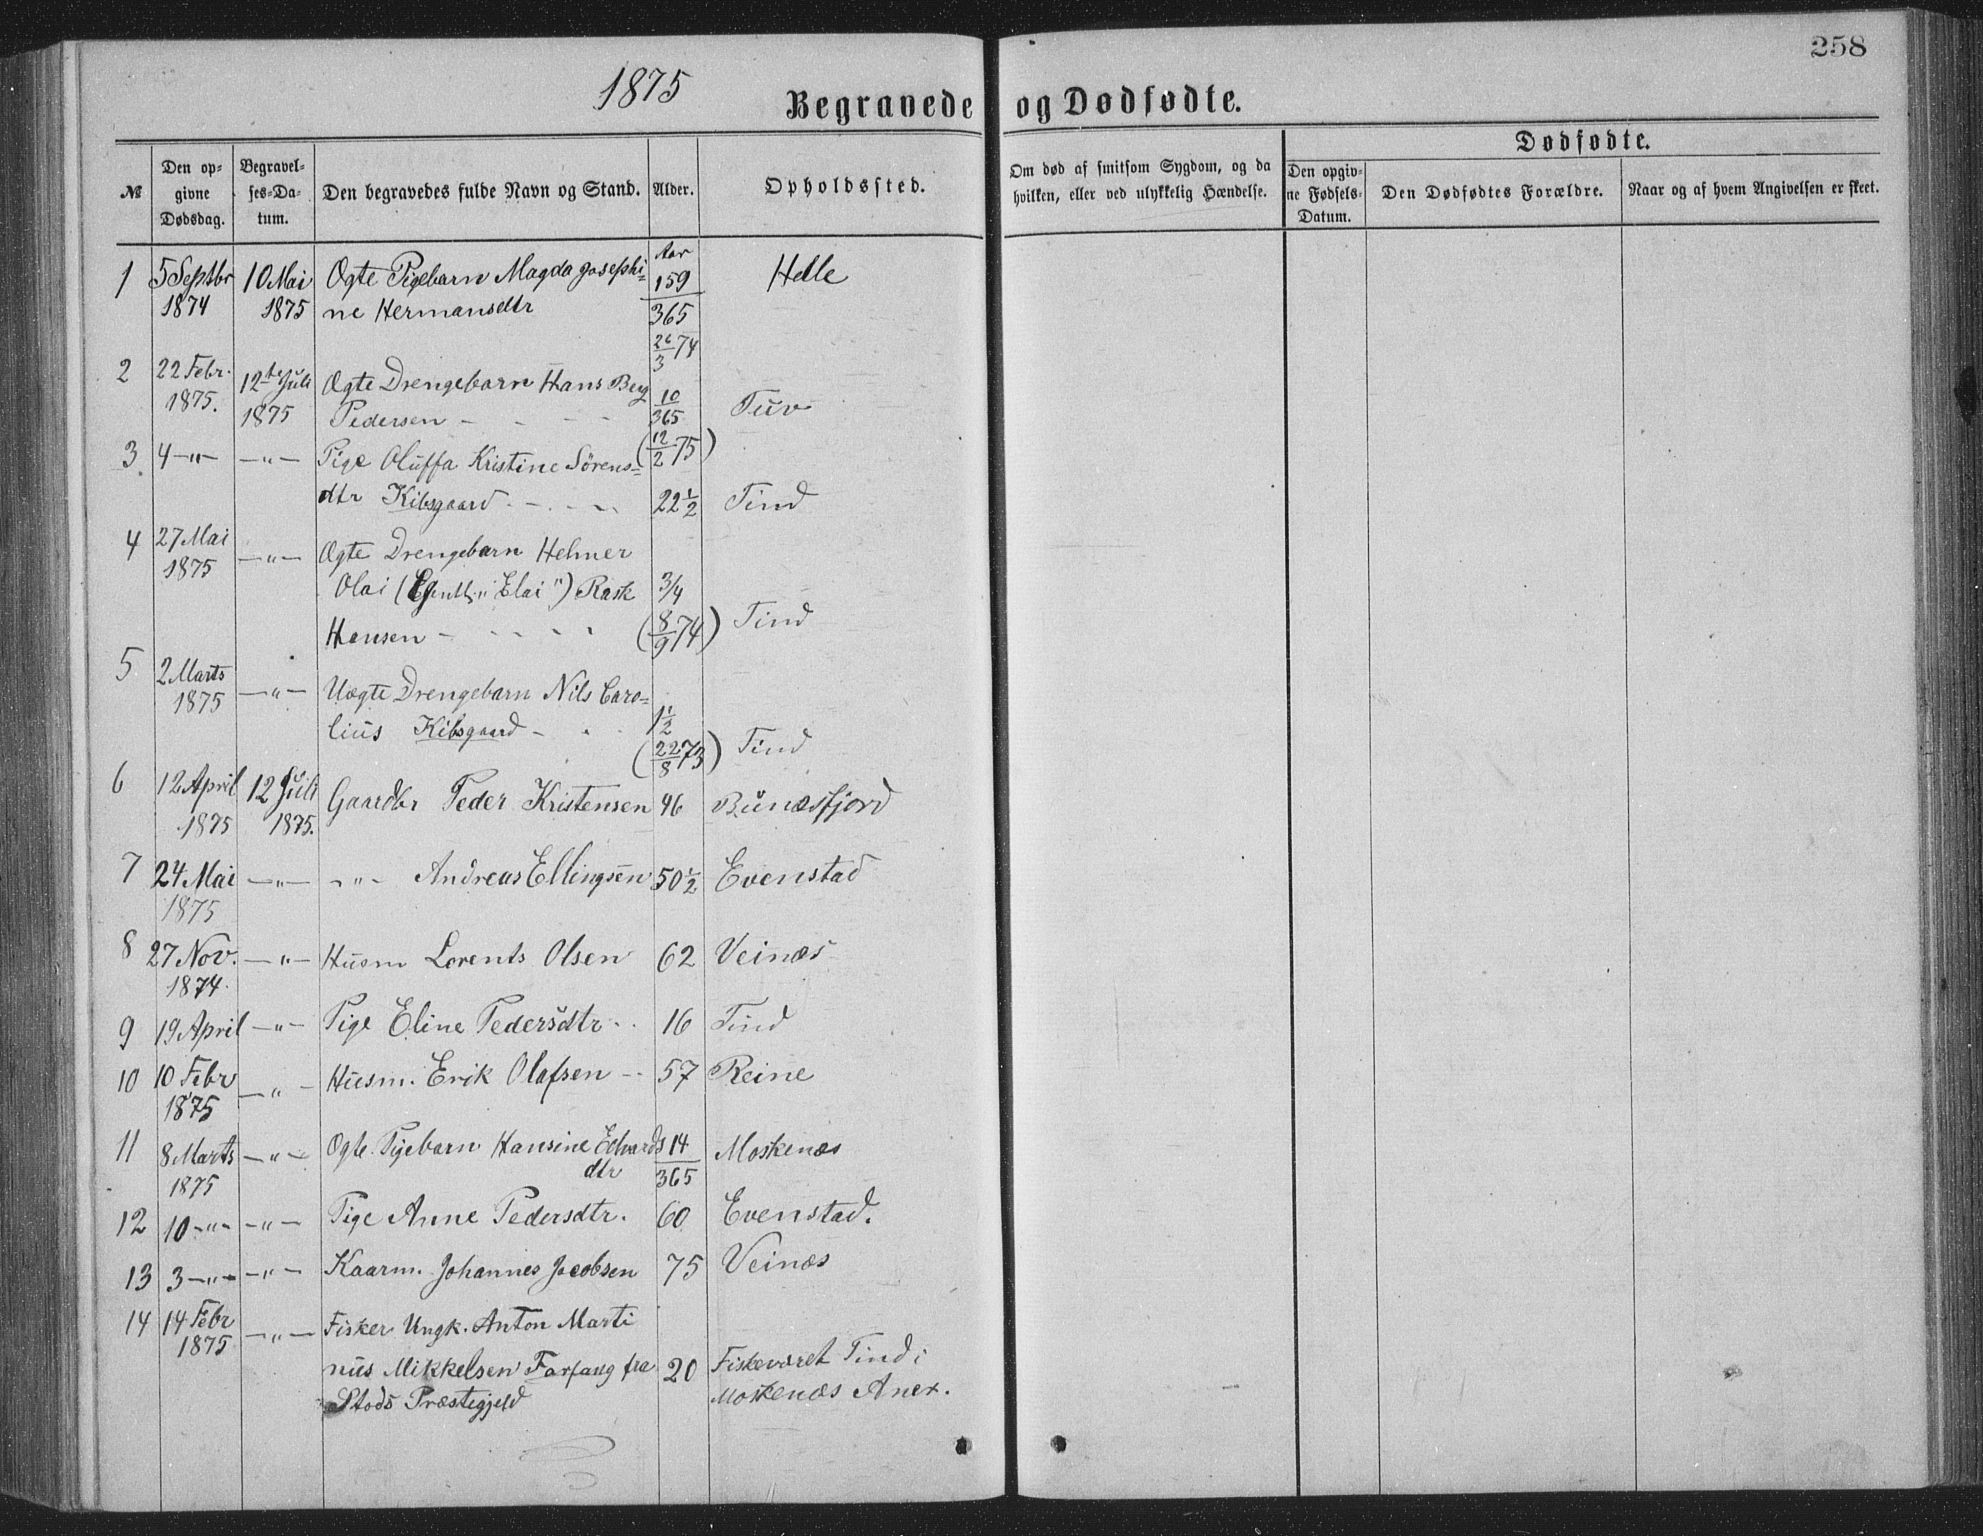 258
1875
Begravede og Dødfødte.
Dødfødte.
№
Den op-
givne
Dødsdag.
Begravel-
ses-Da-
tum.
Den begravedes fulde Navn og Stand.
Alder.
Opholdssted.
Om død af smitsom Sygdom, og da
hvilken, eller ved ulykkelig Hændelse.
Den opgiv-
ne Fødsels-
Datum.
Den Dødfødtes Forældre.
Naar og af hvem Angivelsen er skeet.
Aar
1 5 Septbr 10 Mai Ægte Pigebarn Magda Josephi- 159 Helle
1874 1875 ne Hermansdtr 365
26/3 74
2 22 Febr. 12te Juli Ægte Drengebarn Hans Berg
1875. 1875 Pedersen - - - 10/365 Tuv
3. 4 -"- -"- Pige Oluffa Kristine Sørens- (12/2 75)
dtr Kibsgaard - - - 22 1/2 Tind
4 27 Mai -"- Ægte Drengebarn Helmer
1875 Olai (Egentl. "Elai") Rask 3/4
Hansen - - - - (8/9 74) Tind
5 2 Marts -"- Uægte Drengebarn Nils Caro-
1875 lius Kibsgaard - - 1 1/2
(22/8 73) Tind
6 12 April 12 Juli Gaardbr Peder Kristensen 46 Bunæsfjord
1875 1875.
7 24 Mai -"- -"- Andreas Ellingsen 50 1/2 Evenstad
1875
8 27 Nov. -"- Husm Lorents Olsen 62 Veinæs
1874.
9 19 April -"- Pige Eline Pedersdtr - 16 Tind
10 10 Febr -"- Husm. Erik Olafsen - 57 Reine
1875
11 8 Marts -"- Ægte Pigebarn Hansine Edvards 14 Moskenæs
1875 dtr 365
12 10 -"- -"- Pige Anne Pedersdtr. 60 Evenstad.
13 3 -"- -"- Kaarm. Johannes Jacobsen 75 Veinæs
14 14 Febr -"- Fisker Ungk. Anton Marti
1875 nus Mikkelsen Forfang fra 20 Fiskeværet Tind i
Stods Præstegjeld Moskenæs Anex.